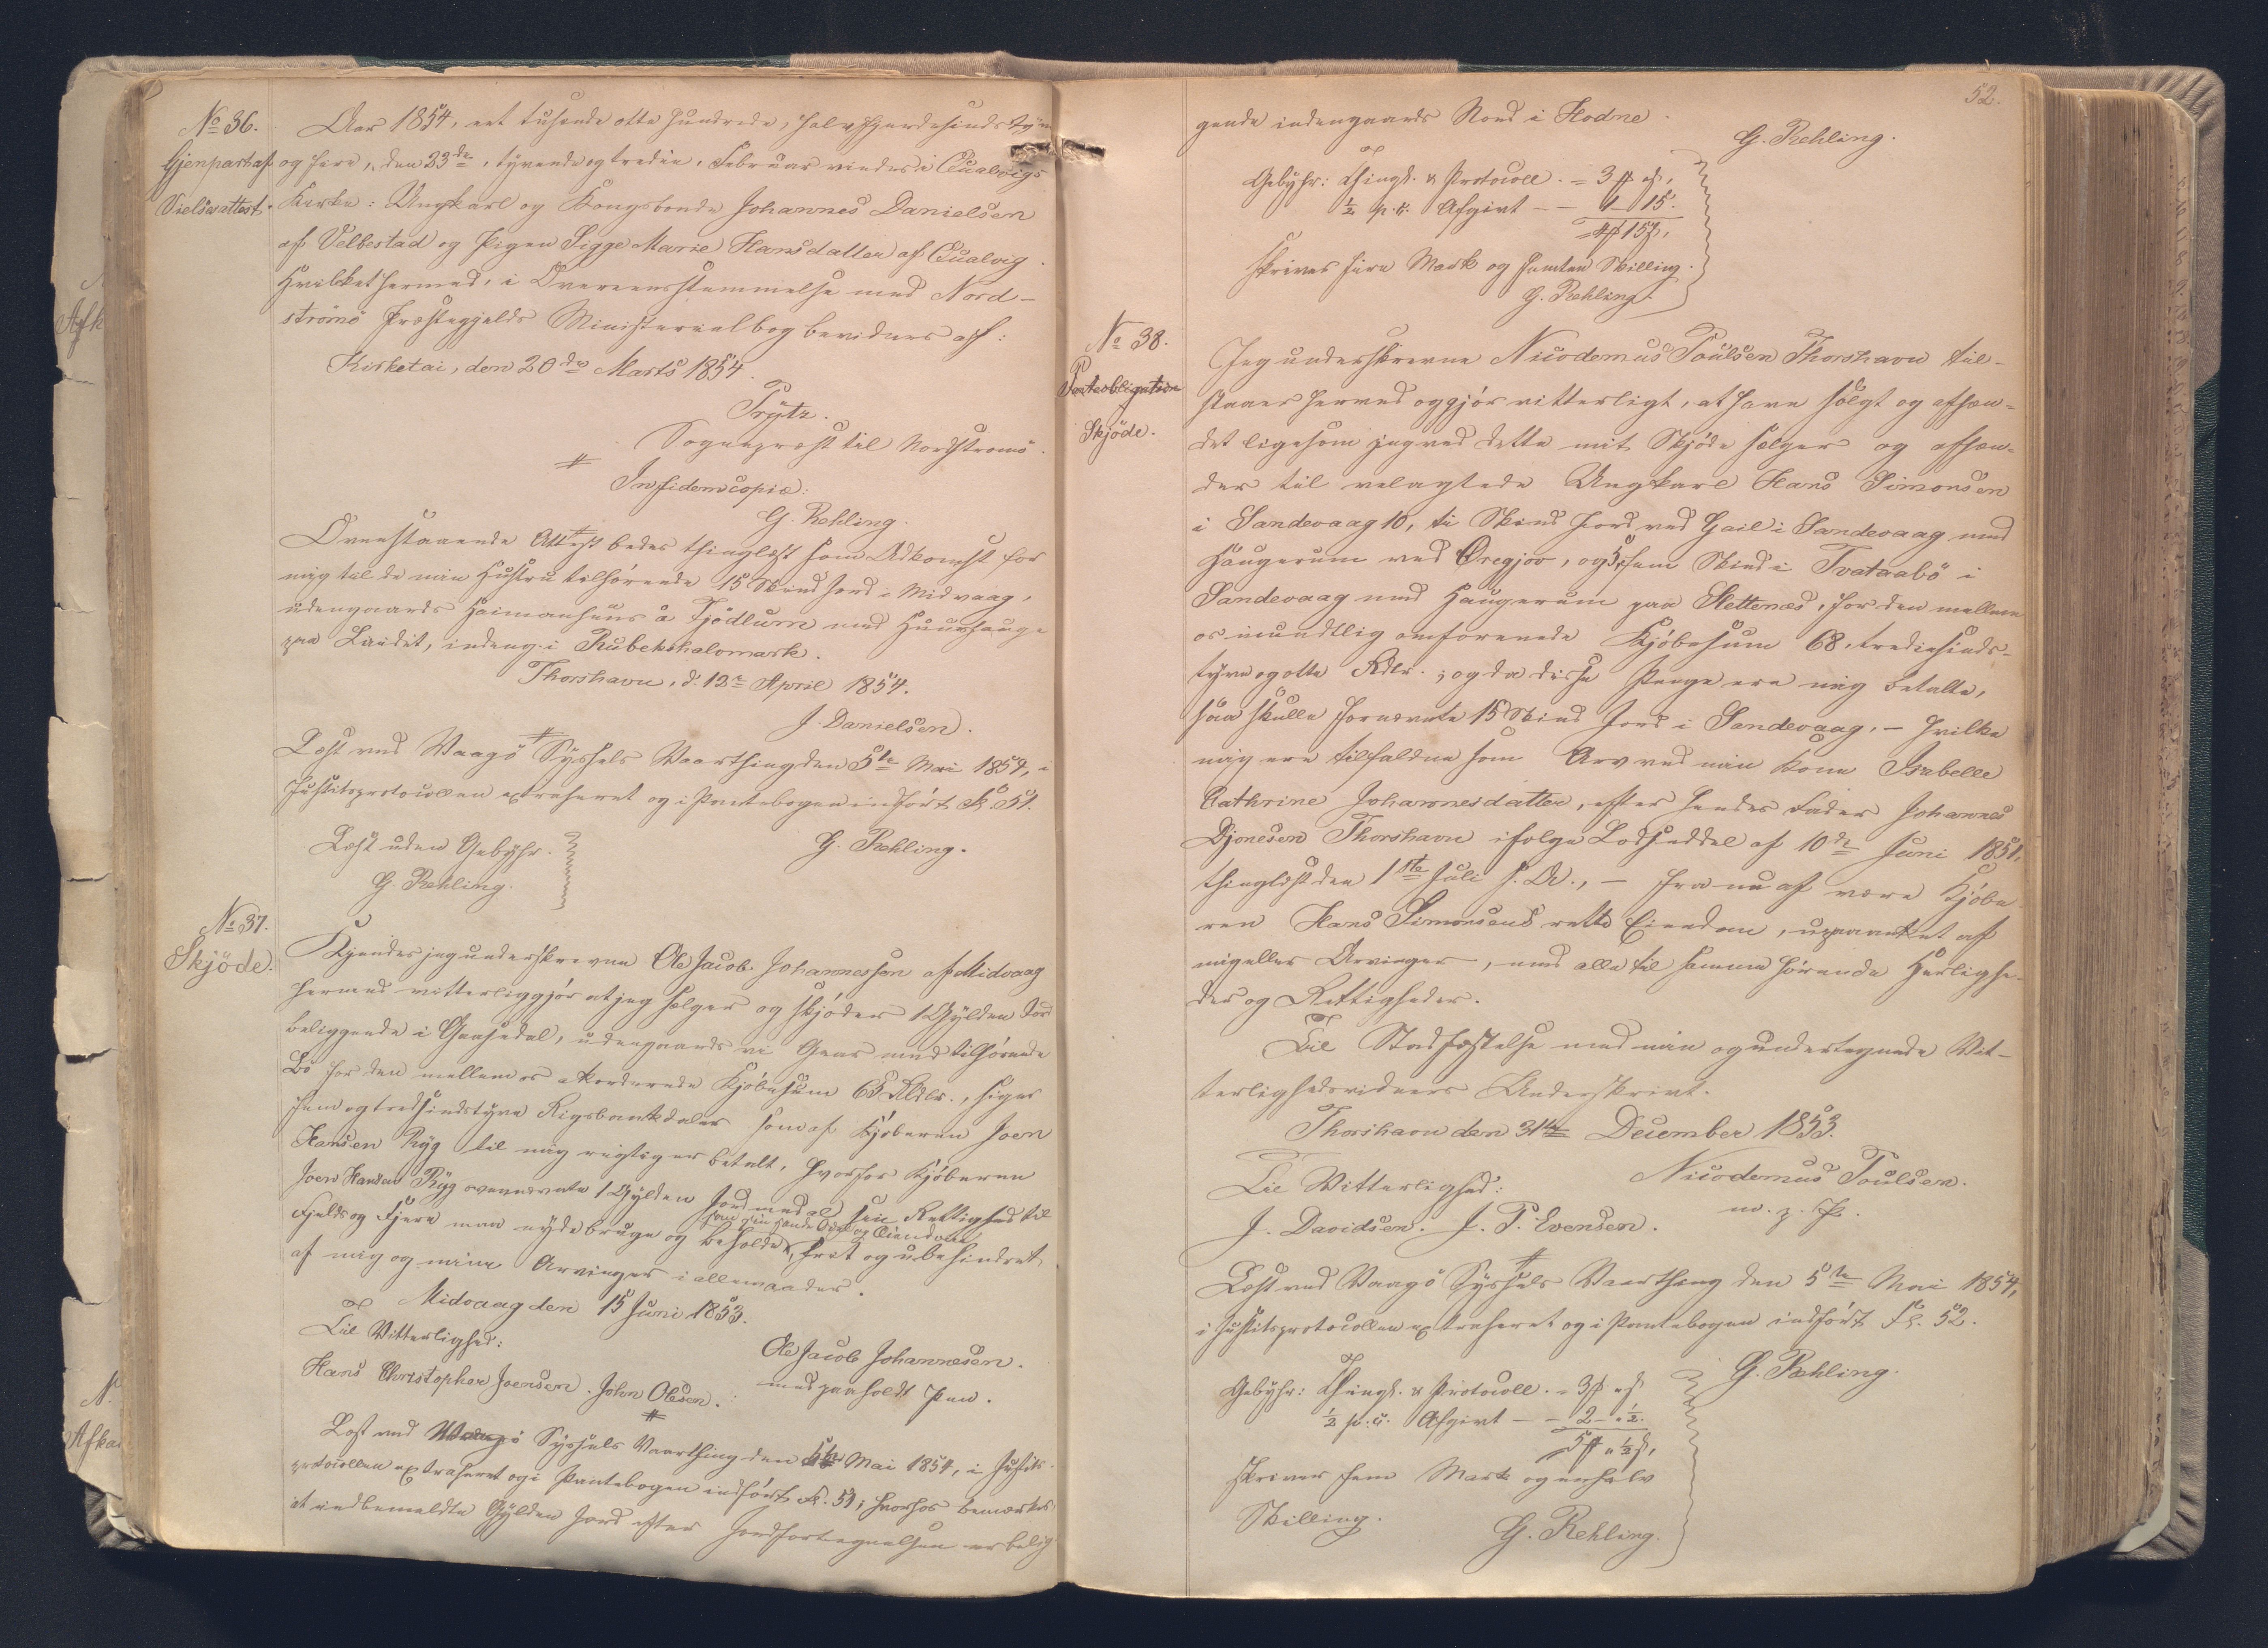 No 36.
Gjenpart af
Vielsesattest.
Aar 1854, eet tusende otte hundrede, halvfjerdesindstyve
og fire, den 23de, tyvende og tredie, Februar viedes i Qualvigs
Kirke: Ungkarl og Kongsbonde Johannes Danielsen
af Velbestad og Pigen Sigge Marie Hansdatter af Qualvig.
Hvilket hermed, i Overeensstemmelse med Nord-
strömö Præstegjelds Ministerialbog bevidnes af:
Kirketai, den 20de Marts 1854.
Trÿtz.
Sognepræst til Nordströmö.
In fidem copiæ:
G. Rehling.
Ovenstaaende Attest bedes thinglæst som Adkomst for
mig til de min Hustru tilhörende 15 Skind Jord i Midvaag,
udengaards Heimanhuus á Fjödlum med Huushauge
paa Landit, indeng. i Kubekshalomark.
Thorshavn, d. 12te April 1854.
J. Danielsen.
Læst ved Vaagö Syssels Vaarthing den 5te Mai 1854, i
Justitsprotocollen extraheret og i Pantebogen indfört Fl. 51.
G. Rehling.
Læst uden Gebyhr.
G. Rehling.
No 37.
Skjöde.
Kjendes jeg underskrevne Ole Jacob Johannessen af Midvaag
hermed vitterliggjör at jeg sælger og skjöder 1 Gylden Jord
beliggende i Gaasedal, udengaards vi Gaar med tilhörende
Bö for den mellem os akorderede Kjöbesum 65 Rdlr., siger
fem og tredsindstyve Rigsbankdaler som af Kjöberen Joen
Hansen Ryg til mig rigtig er betalt, hvorfor Kjöberen
Joen Hansen Ryg ovennævnte 1 Gylden Jord med al sin Rettighed til
Fjelds og Fjære maa nyde bruge og beholde, frit og ubehindret
som sin sande Odel og Eiendom
af mig og mine Arvinger i alle maader.
Midvaag den 15 Juni 1853.
Til Vitterlighed:
Ole Jacob Johannesen.
Hans Christopher Joensen. John Olesen.
med paaholdt Pen.
Læst ved Vaagö Syssels Vaarthing den 5te Mai 1854, i Justits-
protocollen extraheret og i Pantebogen indfört Fl. 51; hvorhos bemærkes
at indbemeldte Gylden Jord efter Jordfortegnelsen er belig-
52.
gende indengaards Nord i Hodne.
G. Rehling.
Gebyhr: Thingl. & Protocoll. = 3 # " ß,
1/2 p. C. Afgivt - - 1 - 15.
= 4 # 15 ß,
skrives fire Mark og femten Skilling.
G. Rehling.
No 38.
Panteobligation
Skjöde.
Jeg underskrevne Nicodemus Poulsen Thorshavn til-
staaer herved og gjör vitterligt, at have solgt og afhæn-
det ligesom jeg ved dette mit Skjöde sælger og afhæn-
der til velagtede Ungkarl Hans Simonsen
i Sandevaag 10, ti Skind Jord ved Gail i Sandevaag med
Haugerum ved Öregjov, og 5, fem Skind i Tvataabö i
Sandevaag med Haugerum paa Slettenæs, for den mellem
os mundtlig omforenede Kjöbesum 68, trediesinds-
tyve og otte Rdlr.; og da disse Penge ere mig betalte,
saa skulle fornævnte 15 Skind Jord i Sandevaag, - hvilke
mig ere tilfaldne som Arv ved min Kone Isabelle
Cathrine Johannesdatter, efter hendes Fader Johannes
Djonesen Thorshavn ifölge Lodseddel af 10de Juni 1851,
thinglæst den 1ste Juli s. A., - fra nu af være Kjöbe-
ren Hans Simonsens rette Eiendom, upaaanket af
mig eller Arvinger, med alle til samme hörende Herlighe-
der og Rettigheder.
Til Stadfæstelse med min og undertegnede Vit-
terlighedsvidners Underskrivt.
Thorshavn den 31te December 1853.
Til Vitterlighed:
Nicodemus Poulsen.
J. Davidsen. J. P. Evensen.
m. p. P.
Læst ved Vaagö Syssels Vaarthing den 5te Mai 1854,
i Justitsprotocollen extraheret og i Pantebogen indfört Fl. 52.
G. Rehling.
Gebyhr: Thingl. & Protocoll. = 3 # " ß
1/2 p. C. Afgivt - - 2 - " 1/2.
5 # " 1/2 ß,
skriver fem Mark og en halv
Skilling.
G. Rehling.